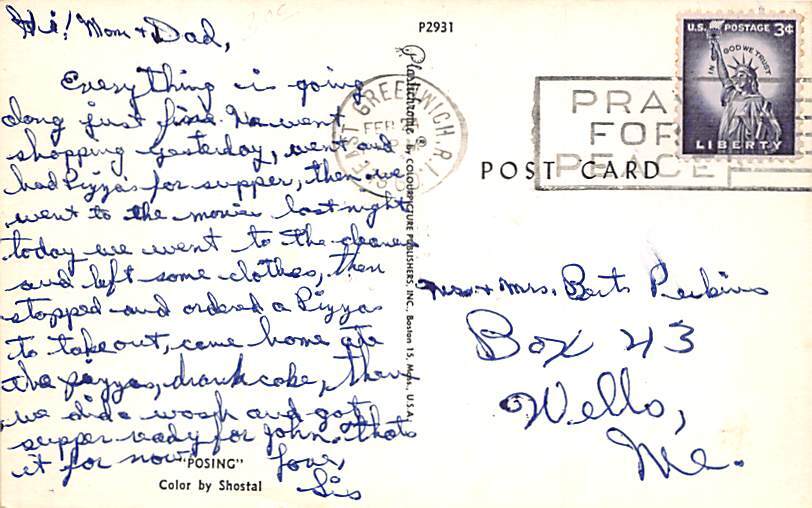 Hi! Mom + Dad,
Everything is going
along just fine. We went
shopping yesterday, went and
had Pizza's for supper, then we
went to the movies last night
today we went to the cleaners
and left some clothes, then
stopped and ordered a Pizza
to take out, came home ate
the pizza, drank coke, then
we did a wash and got
supper ready for John. Thats
it for now
Love,
Sis
"POSING"
Color by Shostal
P2931
Plastichrome ® by COLOURPICTURE PUBLISHERS, INC., Boston 15, Mass., U.S.A.
EAST GREENWICH, R.I.
FEB
PRAY
FOR
PEACE
U.S. POSTAGE 3¢
IN GOD WE TRUST
LIBERTY
POST CARD
Mr. + Mrs. Bert Perkins
Box 43
Wells,
Me.